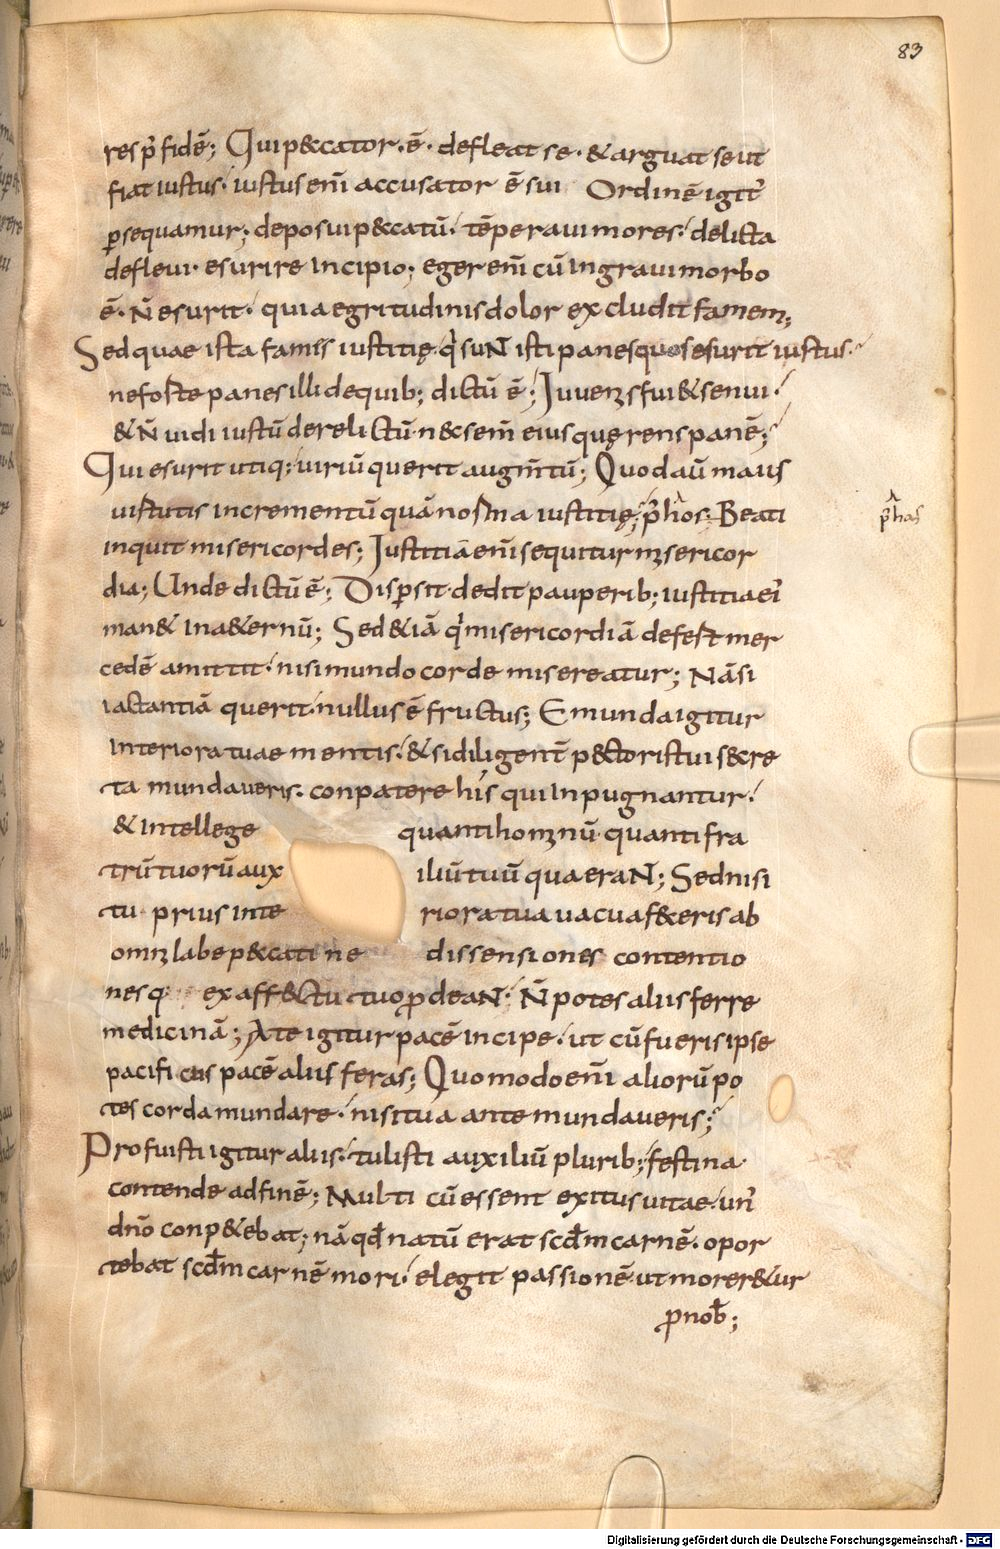 83
res p̄ fidē; Qui p&cator · ē · defleat se · & arguat se ut
fiat iustus · iustus eni̅ accusator ē sui Ordinē igit᷒
ꝑsequamur; deposui p&catū · tēperaui mores · delicta
defleui · esurire incipio; eger eni̅ cū in graui morbo
ē · n̄ esurit · quia egritudinis dolor excludit famem;
Sed quae ista famis iustitię · q̍ sunt isti panes quos esurit iustus ·
ne forte panes illi de quib; dictū ē; Iuuenis fui & senui ·
& n̄ uidi iustū derelictū · n&sem̄ eius quęrens panē;
Qui esurit utiq; uiriū querit augm̄tū; Quod aū maius
uirtutis incrementū quā norma iustitię; p̄ hos · Beati
p̄ has
inquit misericordes; Iustitiā eni̅ sequitur misericor
dia; Unde dictū ē; Dispersit · dedit pauperib; iustitia ei᷒
man& in a&ernū; Sed & iā q̍ misericordiā defert mer
cedē amittit · nisi mundo corde misereatur; Nā si
iactantiā querit · nullus ē fructus; Emunda igitur
interiora tuae mentis · & si diligent̄ p&toris tui secre
ta mundaueris · conpatere his qui inpugnantur ·
& intellege quanti hominū · quanti fra
trū tuorū aux iliū tuū quaerant; Sed nisi
tu prius inte riora tua uacuaf&eris ab
omni labe p&cati ne dissensiones contentio
nes q ex aff&tu tuo ꝓdeant · N̄ potes aliis ferre
medicinā; A te igitur pacē incipe · ut cū fueris ipse
pacificus pacē aliis feras; Quomodo eni̅ aliorū po
tes corda mundare · nisi tua ante mundaueris;
Profuisti igitur aliis · tulisti auxiliū plurib; festina
contende ad finē; Multi cū essent exitus uitae · un᷒
dn̄o conp&ebat; nā qd̄ natū erat scd̄m carnē · opor
tebat scd̄m carnē mori · elegit passionē ut morer&ur
ꝓ nob̄;
Digitalisierung gefördert durch die Deutsche Forschungsgemeinschaft - DFG